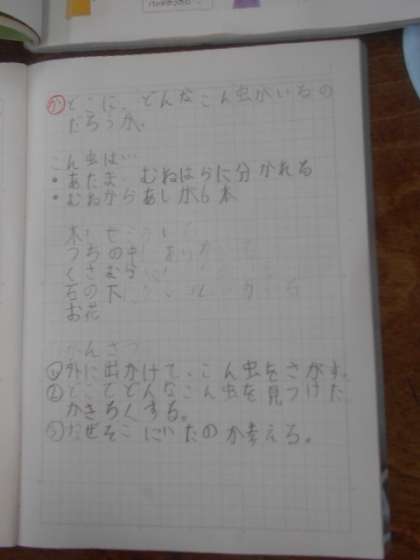 か どこに、どんなこん虫がいるの
だろうか。
こん虫は…
・あたま、むねはらに分かれる
・むねからあしが6本
木
つちの中
くさむら
石の下
お花
かんさつ
①外に出かけて、こん虫をさがす。
②どこでどんなこん虫を見つけた
かきろくする。
③なぜそこにいたのか考える。